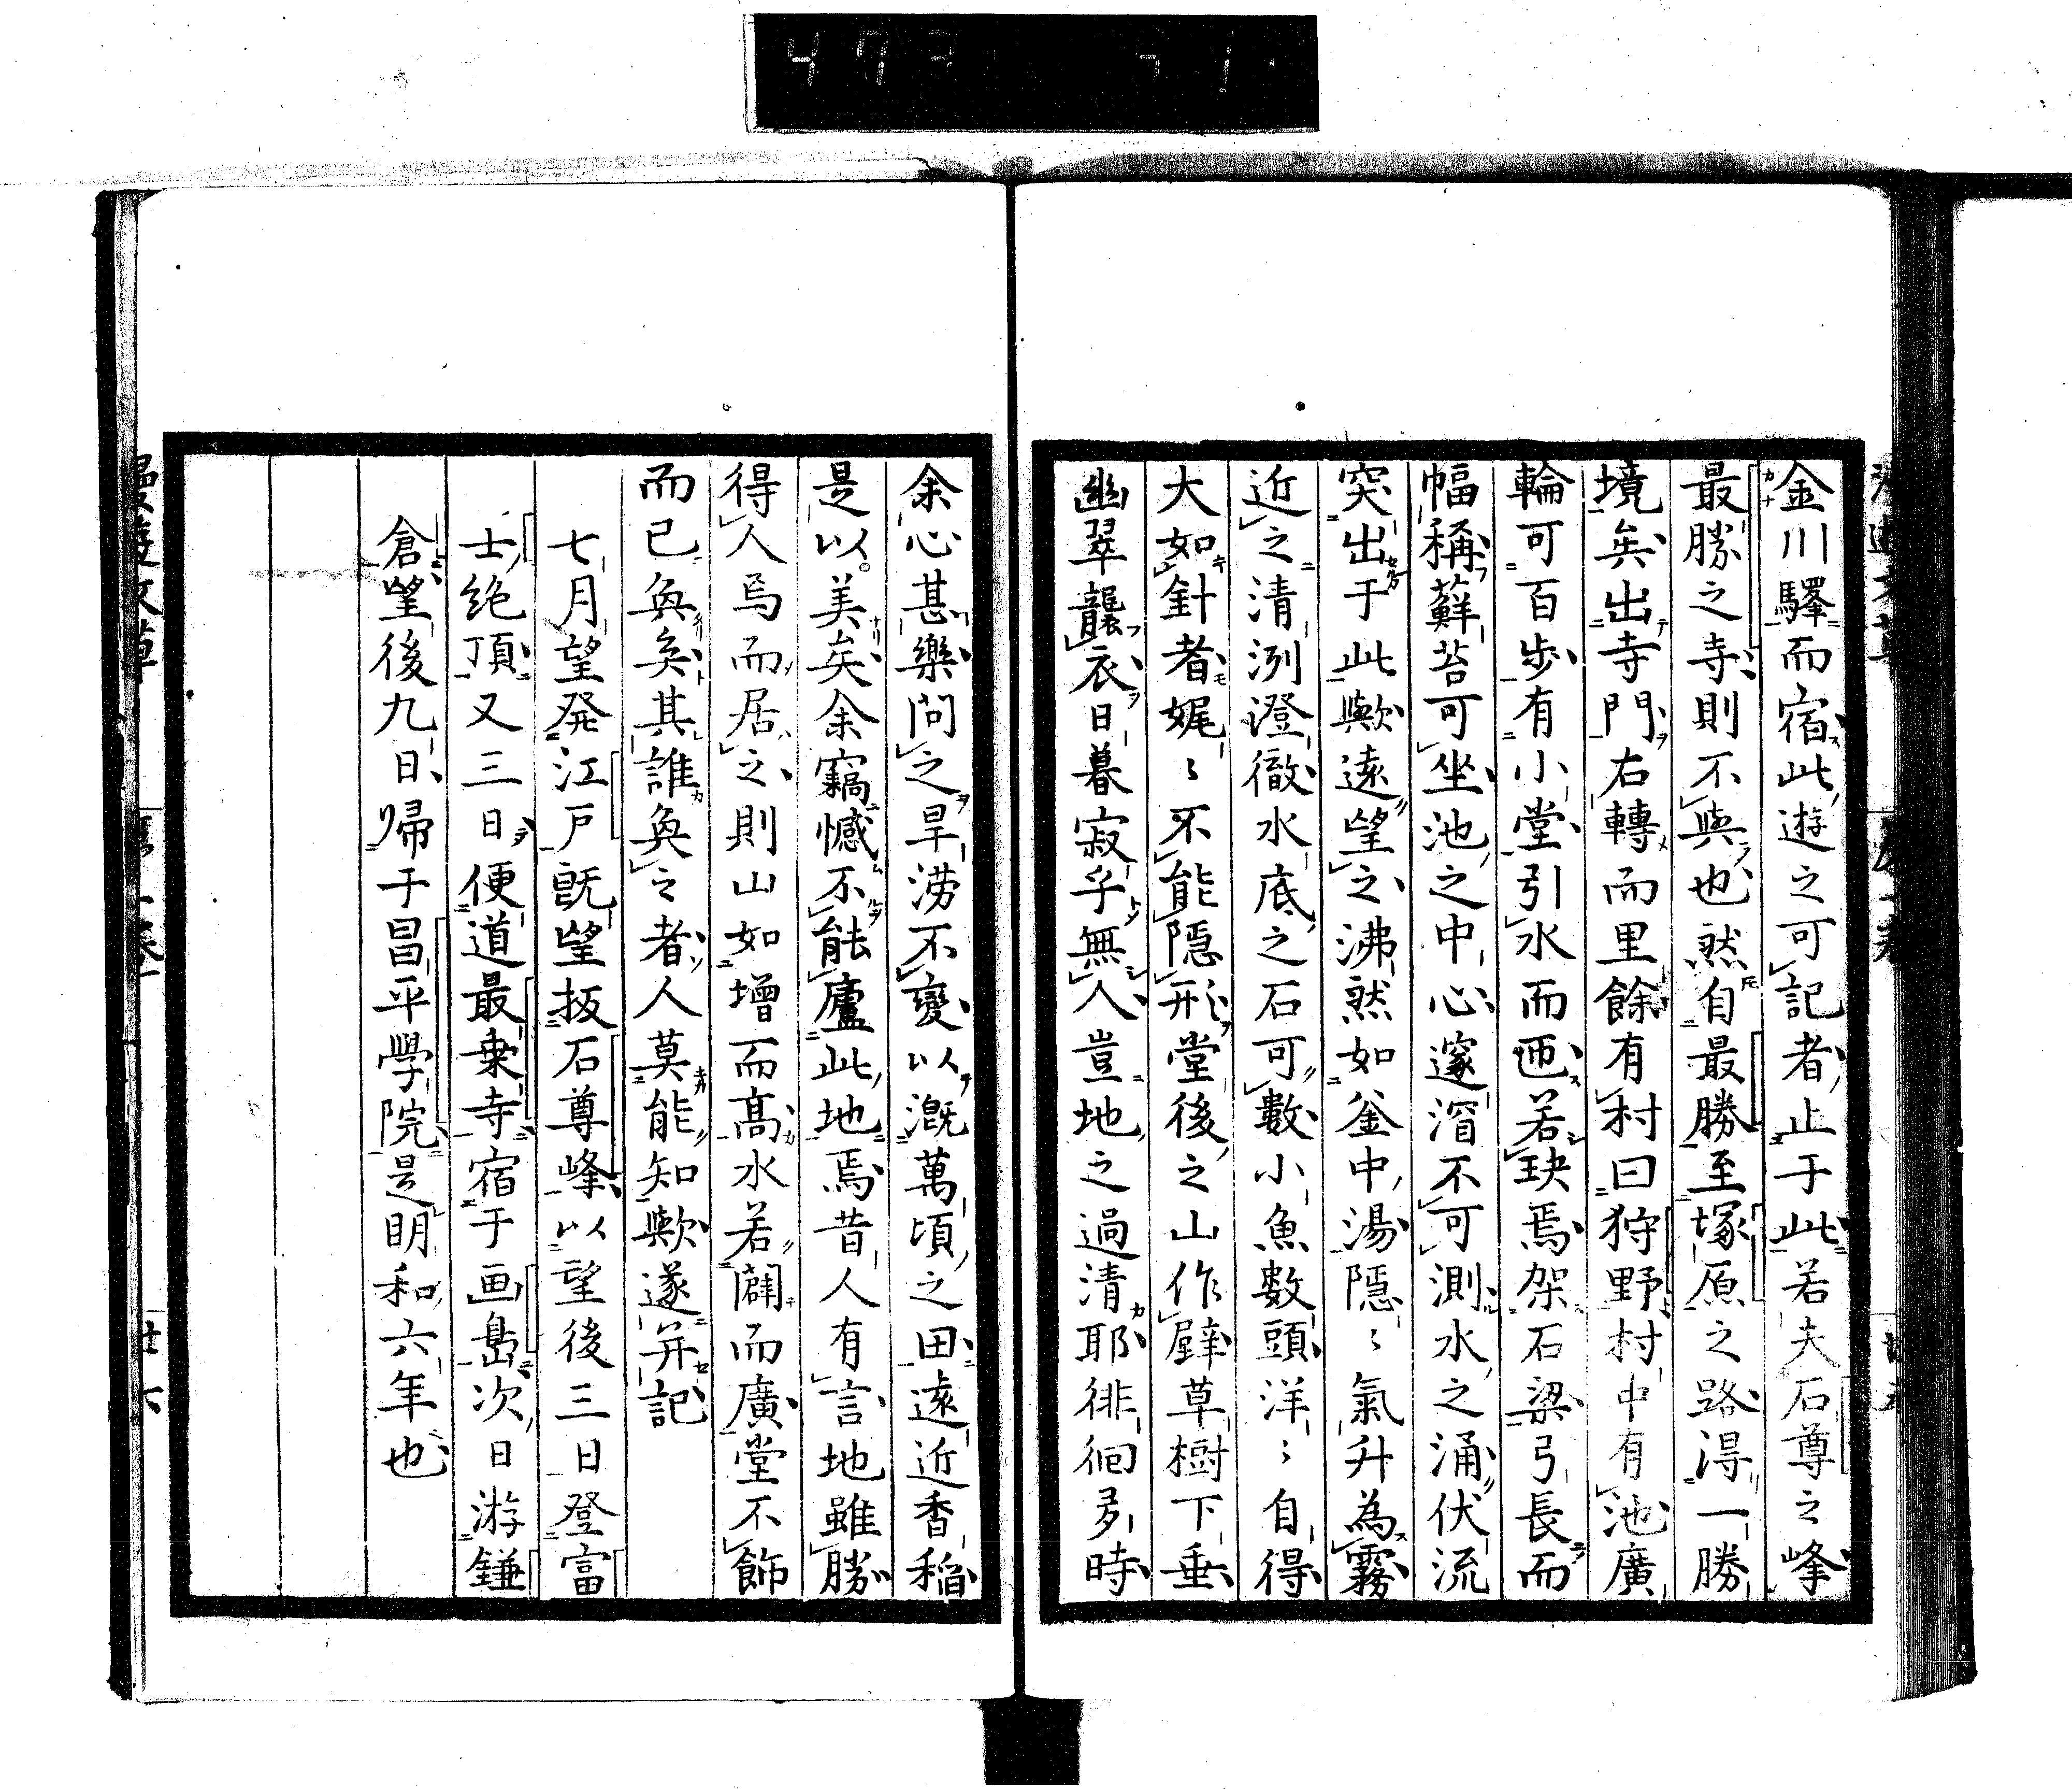 金川驛而宿此遊之可記者止于此若夫石尊之峰
最勝之寺則不與也然自最勝至塚原之路得一勝
境矣出寺門右轉而里餘有村曰狩野村中有池廣
輪可百步有小堂引水而匝若玦焉架石梁弓長而
幅稱蘚苔可坐池之中心邃滀不可測水之涌伏流
突出于此歟遠望之沸然如釜中湯隱〻氣升為霧
近之清洌澄徹水底之石可數小魚數頭洋〻自得
大如針者娓〻不能隱形堂後之山作壁草樹下垂
幽翠襲衣日暮寂乎無人豈地之過清耶徘徊移時
余心甚樂問之旱澇不變以漑萬頃之田遠近香稲
是以美矣余竊憾不能廬此地焉昔人有言地雖勝
得人焉而居之則山如增而高水若闢而廣堂不飾
而已奐矣其誰奐之者人莫能知歟遂并記
七月望発江戸既望抜石尊峰以望後三日登富
士絶頂又三日便道最乗寺宿于画島次日游鎌
倉望後九日帰于昌平學院是明和六年也
4 7 2
漫遊文草
卅六